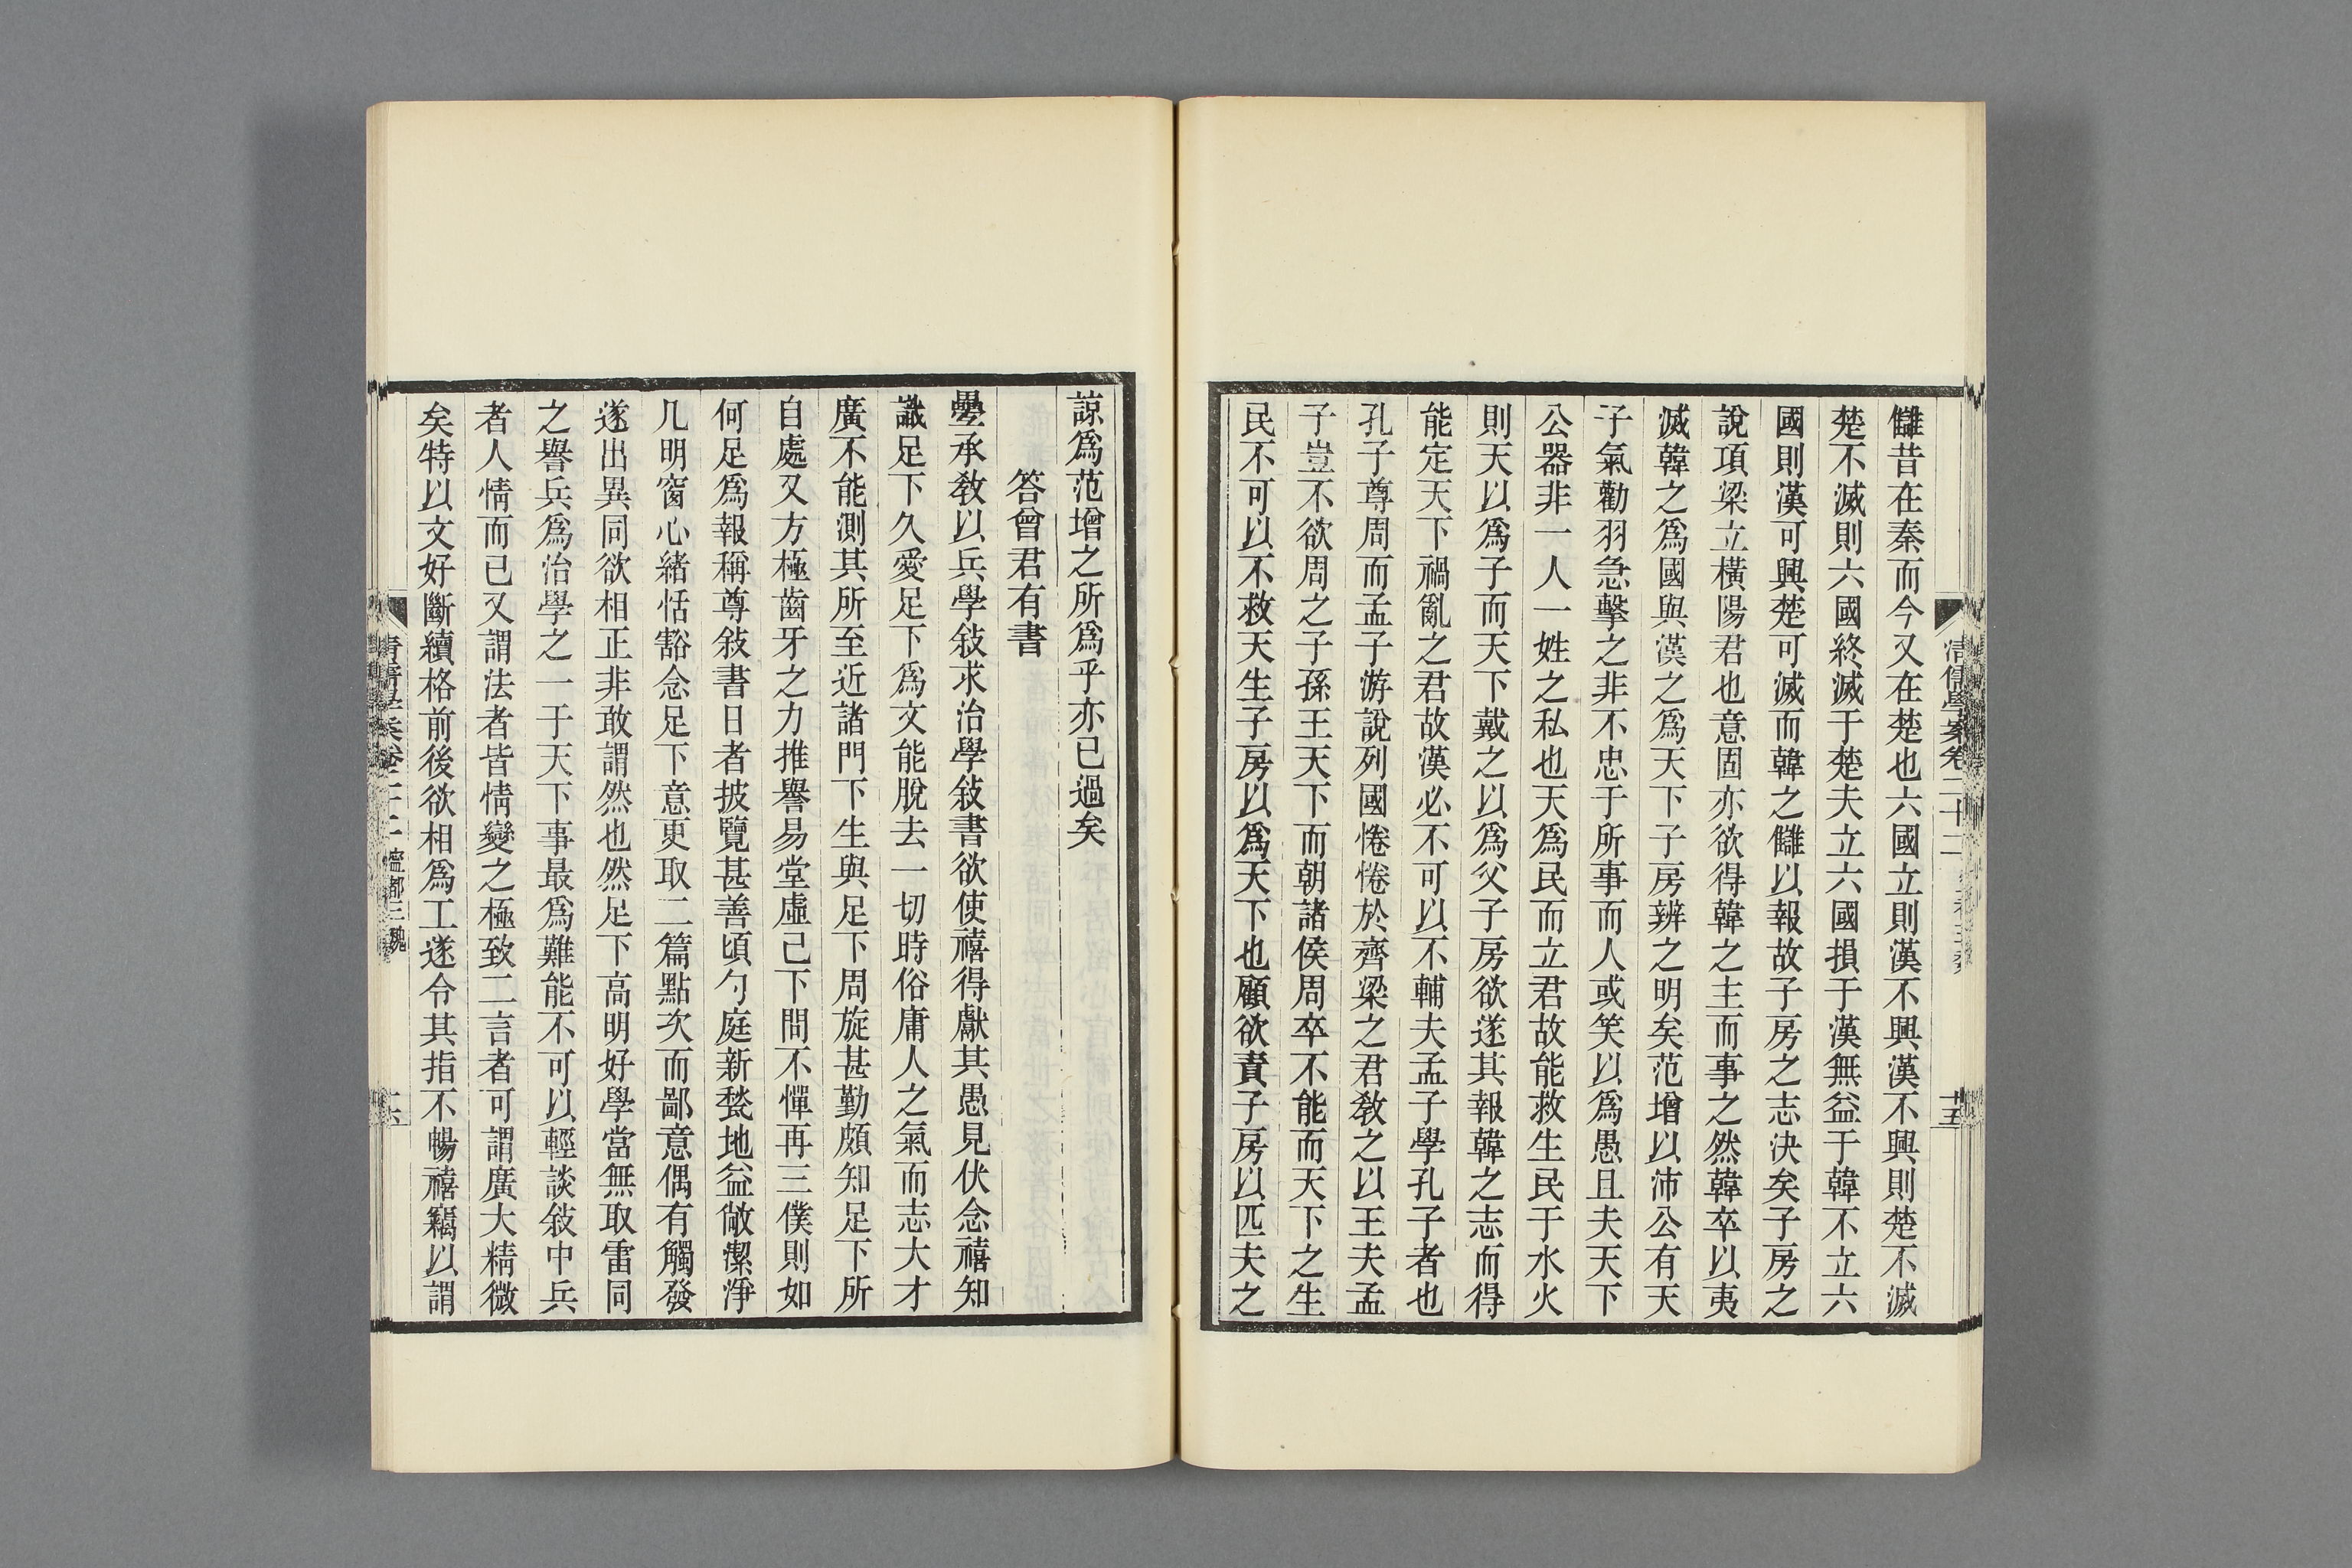 讎昔在秦而今又在楚也六國立則漢不興漢不興則楚不滅
楚不滅則六國終滅于楚夫立六國損于漢無益于韓不立六
國則漢可興楚可滅而韓之讎以報故子房之志決矣子房之
說項梁立橫陽君也意固亦欲得韓之主而事之然韓卒以夷
滅韓之爲國與漢之爲天下子房辨之明矣范增以沛公有天
子氣勸羽急擊之非不忠于所事而人或笑以爲愚且夫天下
公器非一人一姓之私也天爲民而立君故能救生民于水火
則天以爲子而天下戴之以爲父子房欲遂其報韓之志而得
能定天下禍亂之君故漢必不可以不輔夫孟子學孔子者也
孔子尊周而孟子游說列國惓惓於齊梁之君敎之以王夫孟
子豈不欲周之子孫王天下而朝諸侯周卒不能而天下之生
民不可以不救天生子房以爲天下也顧欲責子房以匹夫之
諒爲范增之所爲乎亦已過矣
答曾君有書
壘承敎以兵學敍求治學敍書欲使禧得獻其愚見伏念禧知
識足下久愛足下爲文能脫去一切時俗庸人之氣而志大才
廣不能測其所至近諸門下生與足下周旋甚勤頗知足下所
自處又方極齒牙之力推譽易堂虛己下問不憚再三僕則如
何足爲報稱尊敍書日者披覽甚善頃勺庭新甃地益敞潔淨
几明窗心緒恬豁念足下意更取二篇點次而鄙意偶有觸發
遂出異同欲相正非敢謂然也然足下高明好學當無取雷同
之譽兵爲治學之一于天下事最爲難能不可以輕談敍中兵
者人情而已又謂法者皆情變之極致二言者可謂廣大精微
矣特以文好斷續格前後欲相爲工遂令其指不暢禧竊以謂
清儒學案卷二十二
十五
寧都三魏
十六